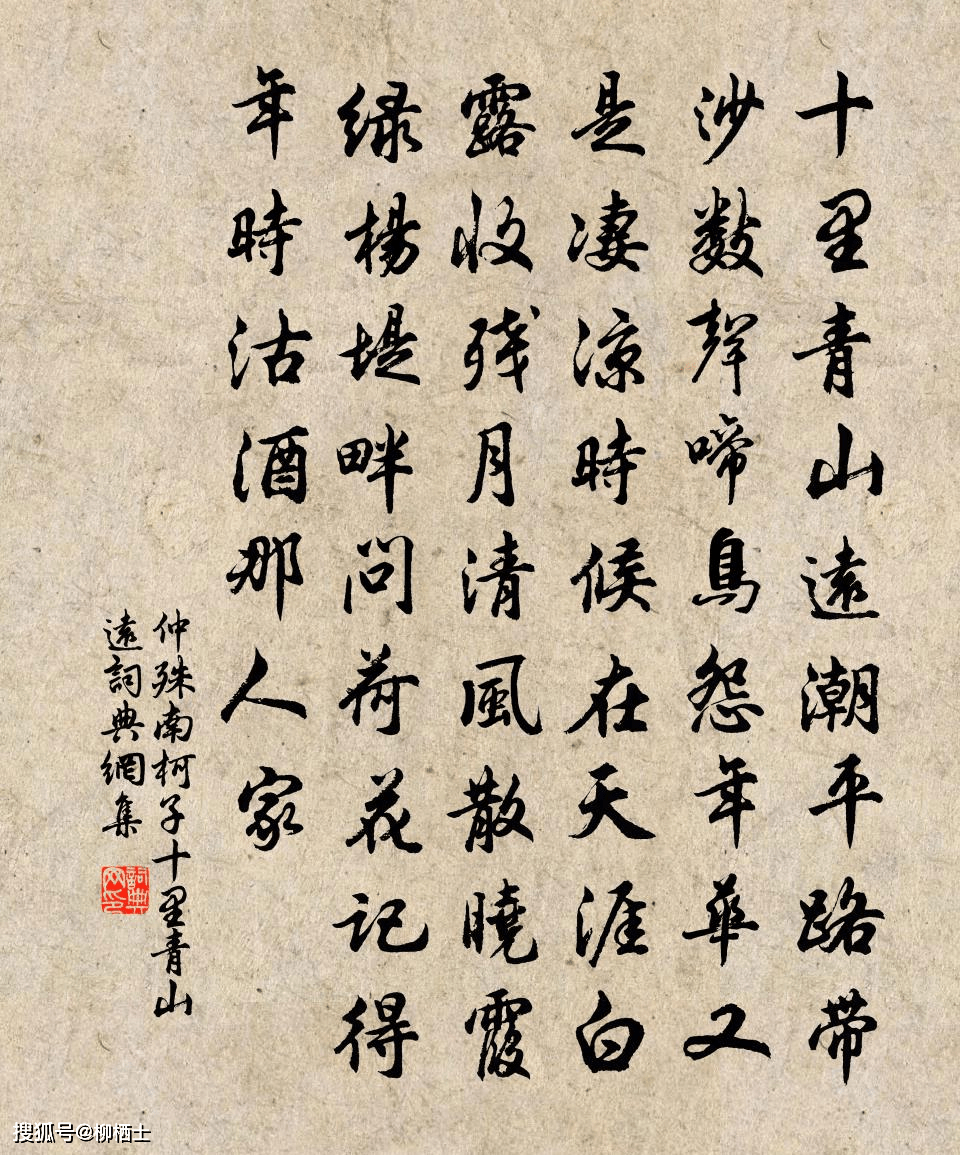 十里青山遠潮平路带
沙数聲啼鳥怨年華又
是凄涼時候在天涯白
露收残月清風散曉霞
緑楊堤畔問荷花記得
年時沽酒那人家
仲殊南柯子十里青山
遠詞典網集
詞典
网印
搜狐号@柳栖士